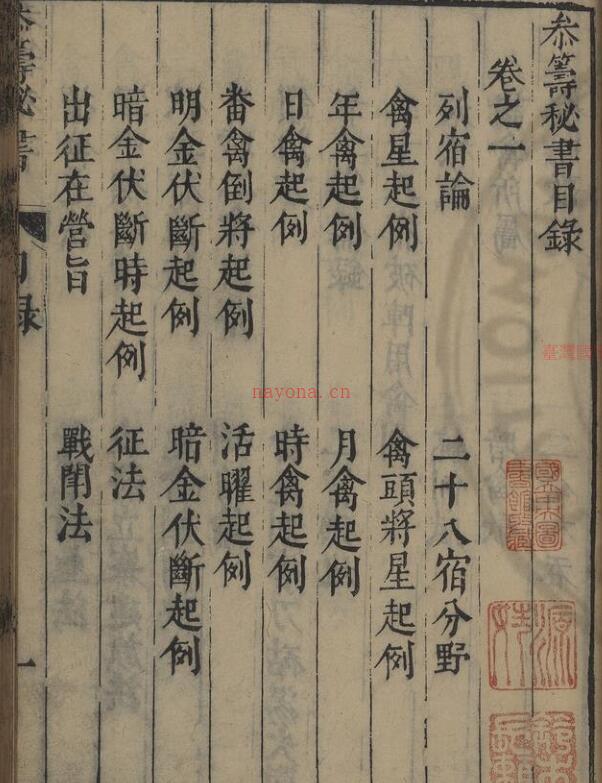 參籌秘書目錄
卷之一
列宿論 二十八宿分野
禽星起例 禽頭將星起例
年禽起例 月禽起例
日禽起例 時禽起例
畨禽倒將起例 活曜起例
明金伏斷起例 暗金伏斷起例
暗金伏斷時起例 征法
出征在營旨 戰鬥法
參籌秘書 目録 一
nayona.cn
臺灣國